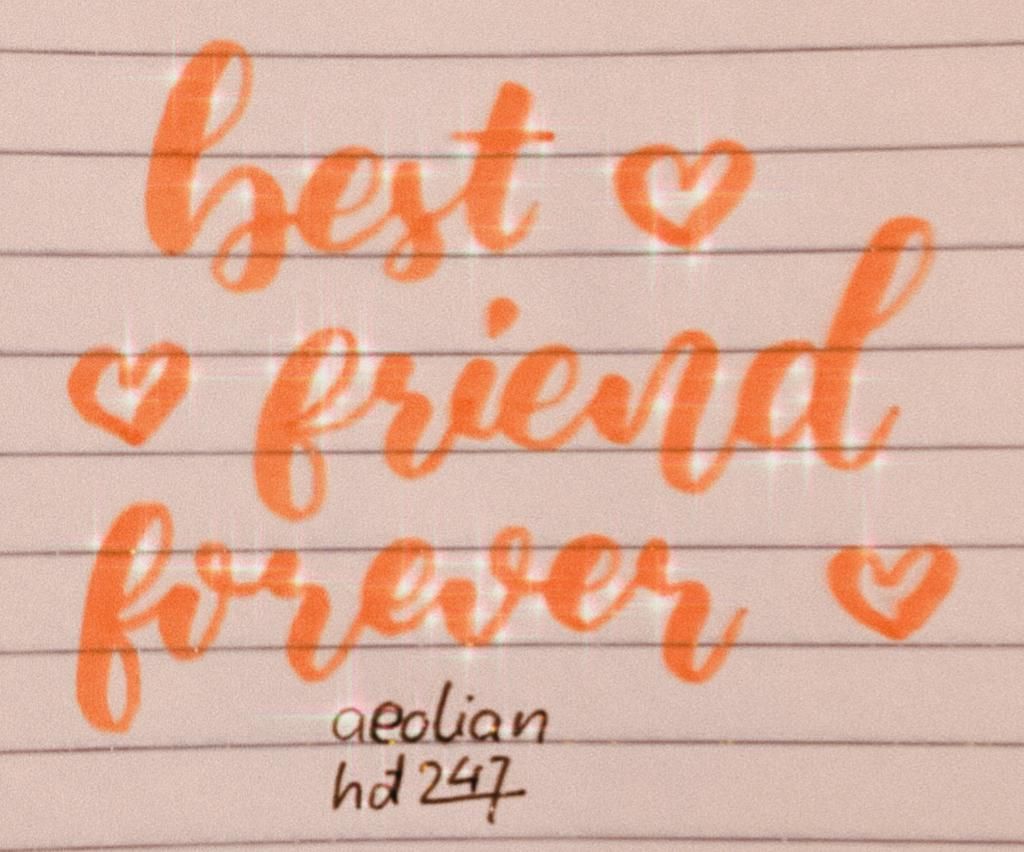 best
friend
forever
aeolian
hd 247